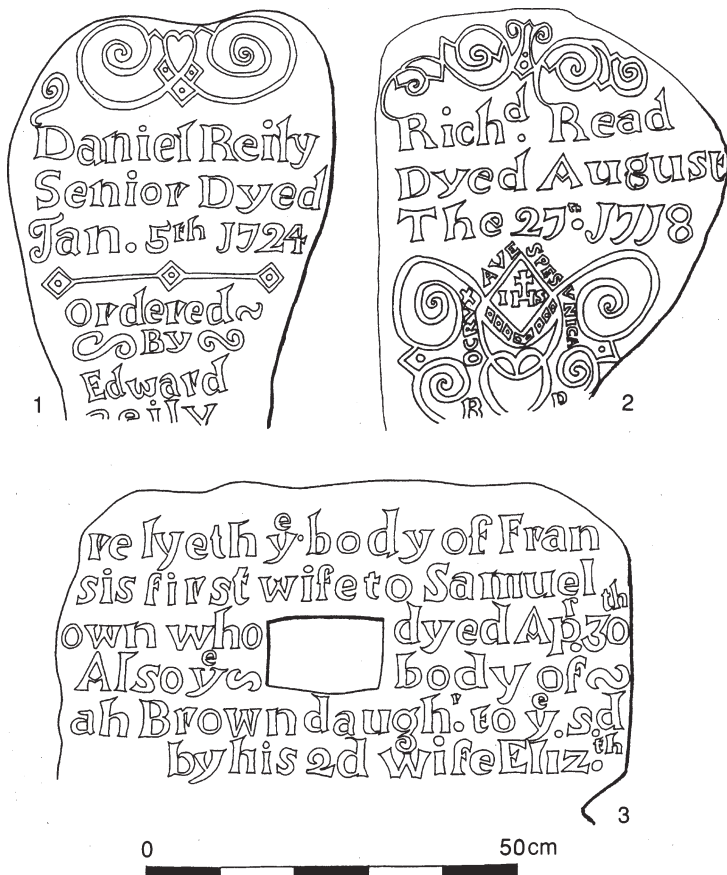 Daniel Reily
Senior Dyed
Jan. 5th 1724
Ordered~
By
Edward
Reily
1
Richd. Read
Dyed August
The 27th. 1718
OCRUX AVE SPES UNICA
IHS
R D
2
re lyeth ye. body of Fran
sis first wife to Samuel
own who dyed Apr. 30th
Also ye~ body of~
ah Brown daughr. to ye. s.d
by his 2d wife Eliz.th
3
0 50cm